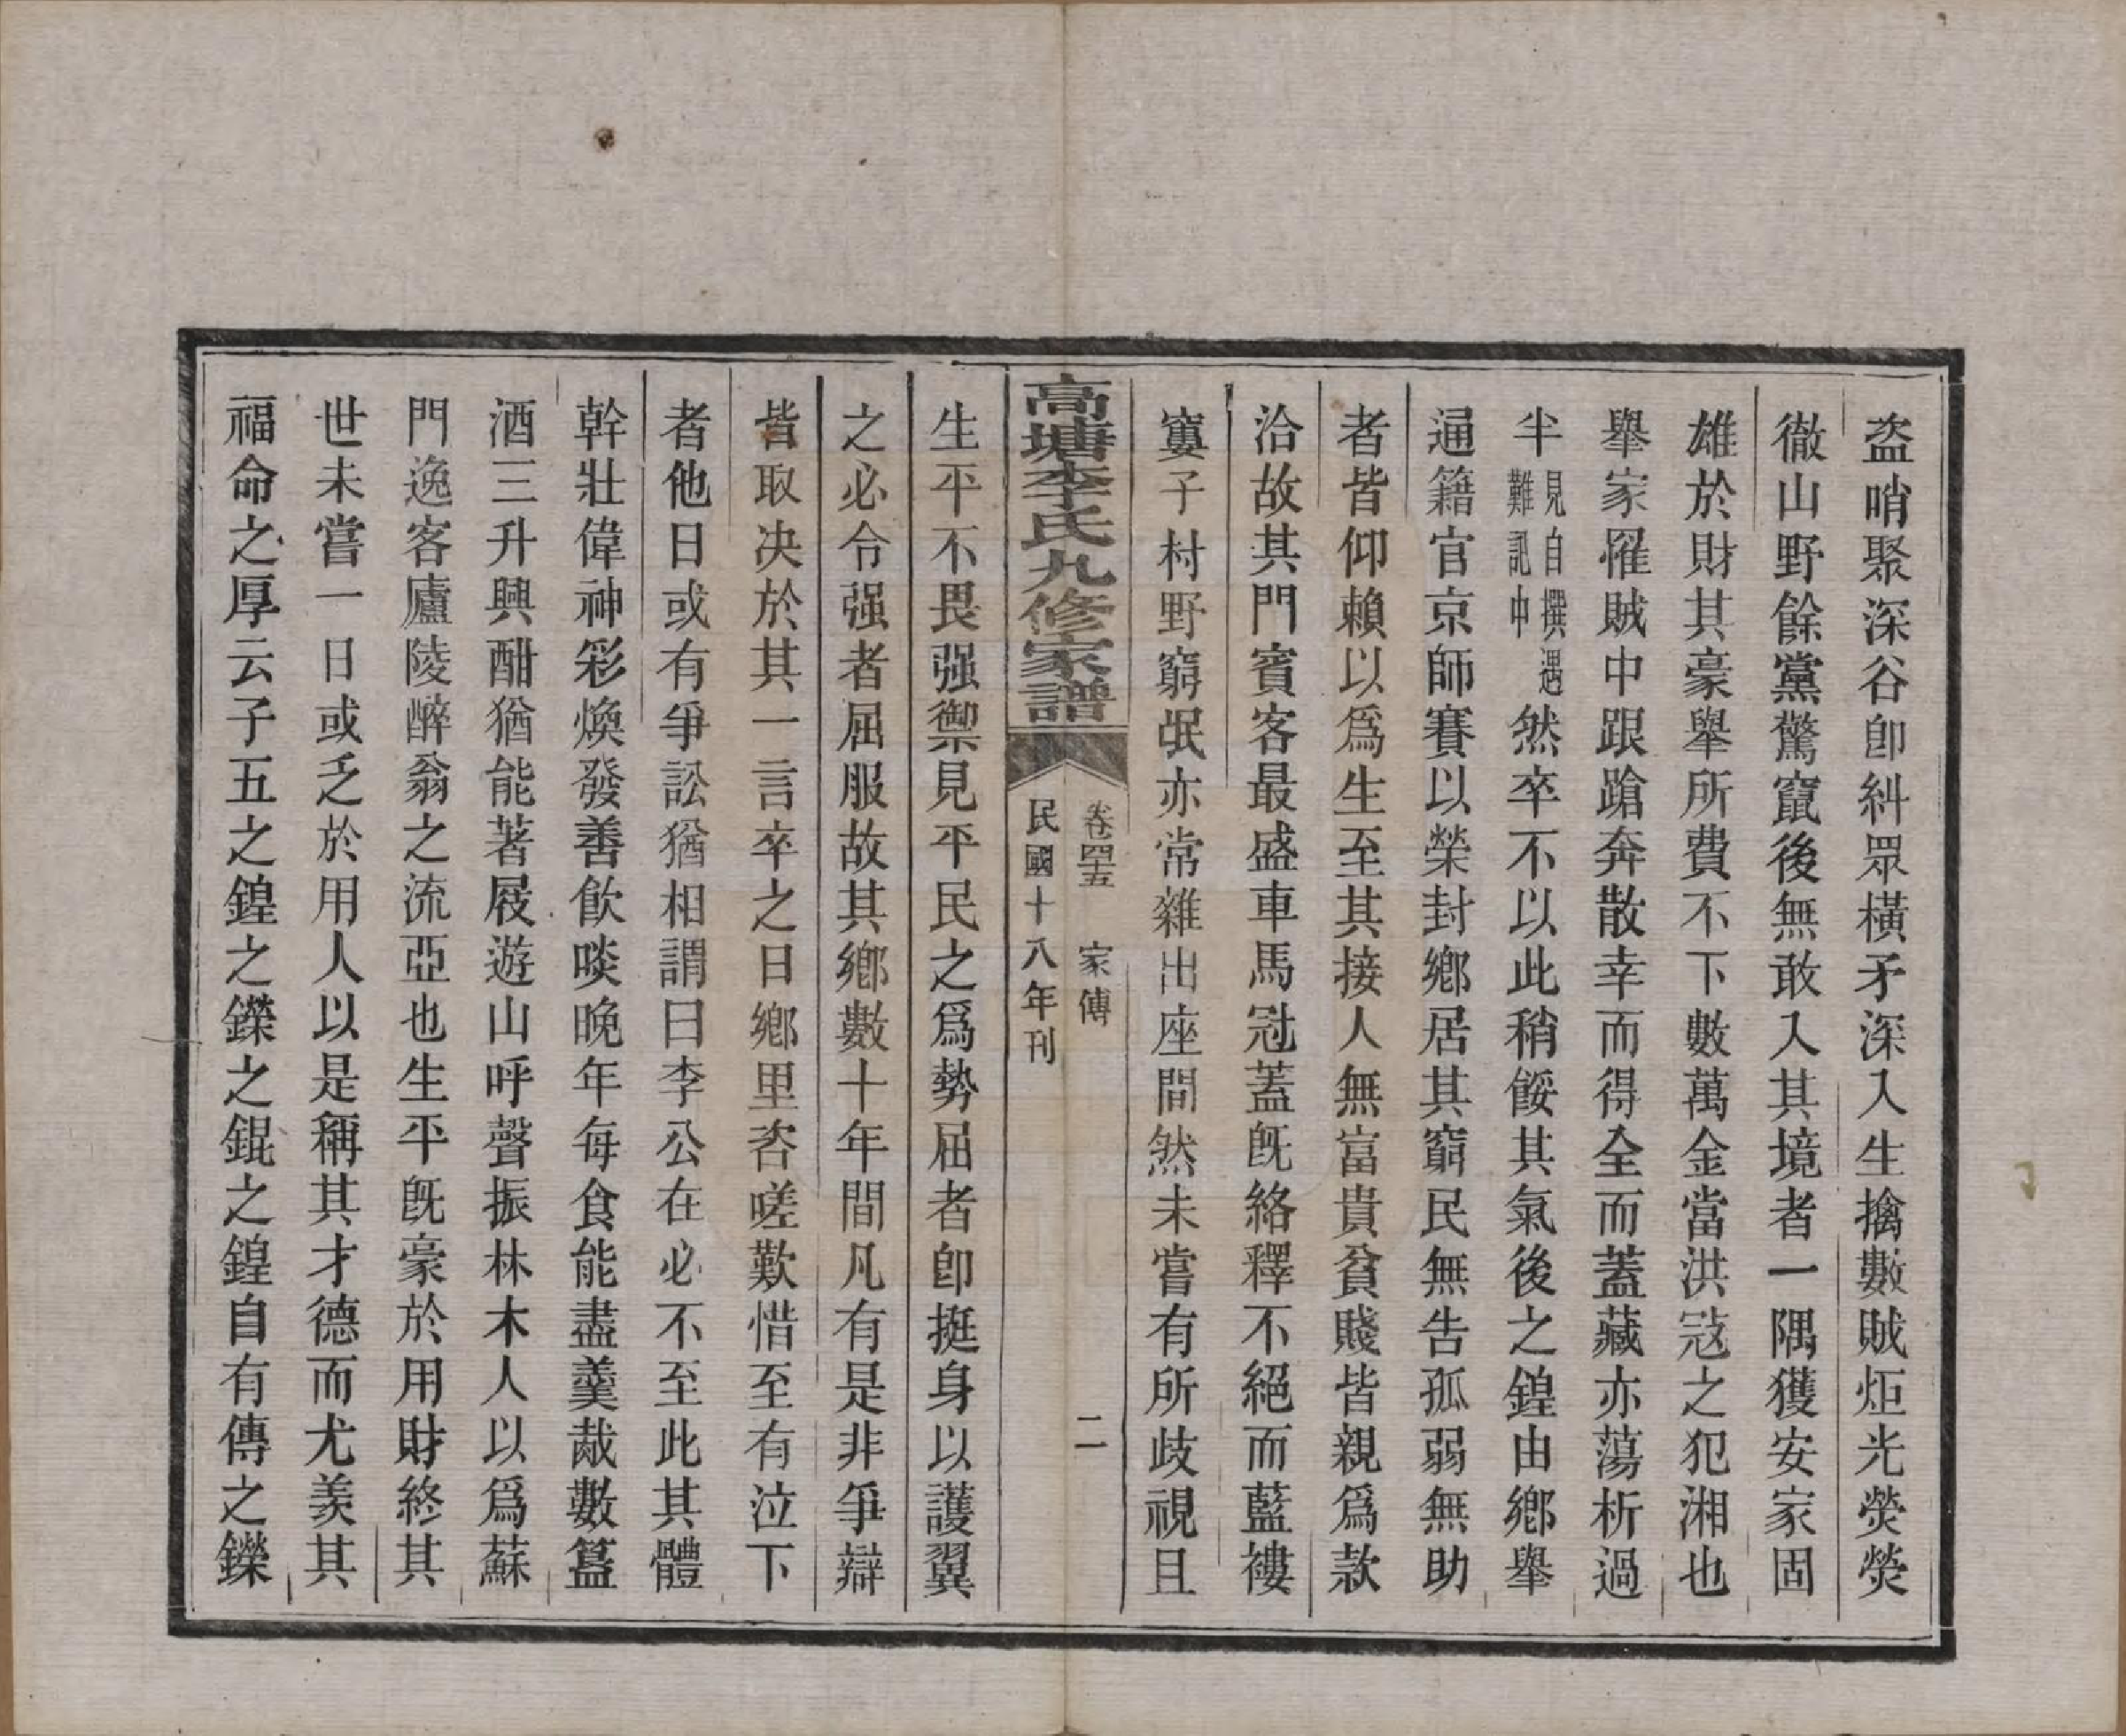 盜哨聚深谷卽糾眾橫矛深入生擒數賊炬光熒熒
徹山野餘黨驚竄後無敢入其境者一隅獲安家固
雄於財其豪舉所費不下數萬金當洪寇之犯湘也
舉家罹賊中踉蹌奔散幸而得全而蓋藏亦蕩析過
半見自撰遇難記中然卒不以此稍餒其氣後之鍠由鄉舉
通籍官京師賽以榮封鄉居其窮民無告孤弱無助
者皆仰賴以爲生至其接人無富貴貧賤皆親爲款
洽故其門賓客最盛車馬冠蓋旣絡釋不絕而藍褸
窶子村野窮氓亦常雜出座間然未嘗有所歧視且
高塘李氏九修家譜
卷四十五 家傳 二
民國十八年刊
生平不畏强禦見平民之爲勢屈者卽挺身以護翼
之必令强者屈服故其鄉數十年間凡有是非爭辯
皆取決於其一言卒之日鄉里咨嗟歎惜至有泣下
者他日或有爭訟猶相謂曰李公在必不至此其體
幹壯偉神彩煥發善飲啖晚年每食能盡羹胾數簋
酒三升興酣猶能著屐遊山呼聲振林木人以爲蘇
門逸客廬陵醉翁之流亞也生平旣豪於用財終其
世未嘗一日或乏於用人以是稱其才德而尤羨其
福命之厚云子五之鍠之鑅之錕之鍠自有傳之鑅